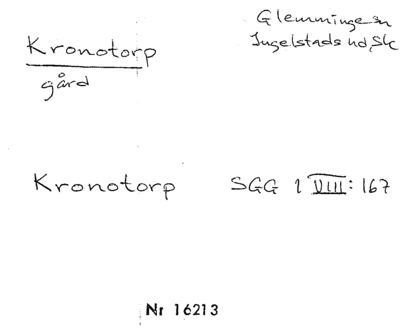 Kronotorp
gård
Glemminge sn
Ingelstads hd, Sk
Kronotorp SGG 1 VIII: 167
Nr 16213